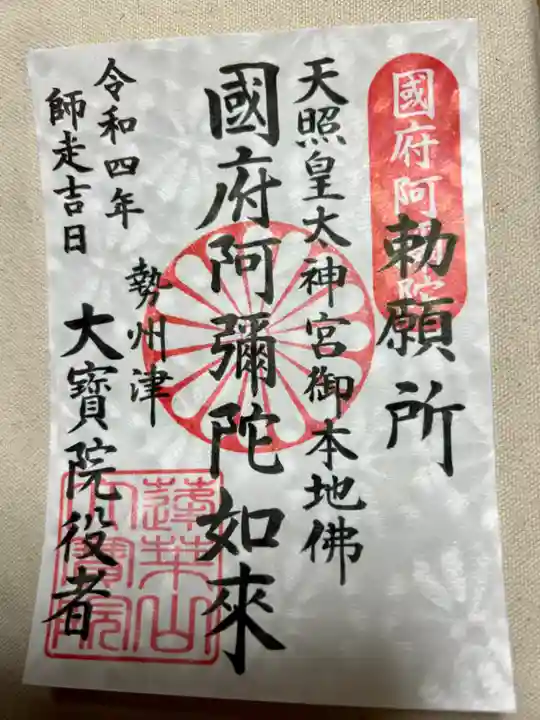 國府阿彌陀
勅願所
天照皇大神宮御本地佛
國府阿彌陀如來
令和四年
師走吉日
勢州津
大寶院役者
蓮華山
大寶院